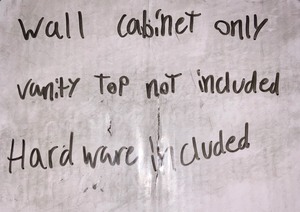 Wall cabinet only
vanity Top not included
Hardware included